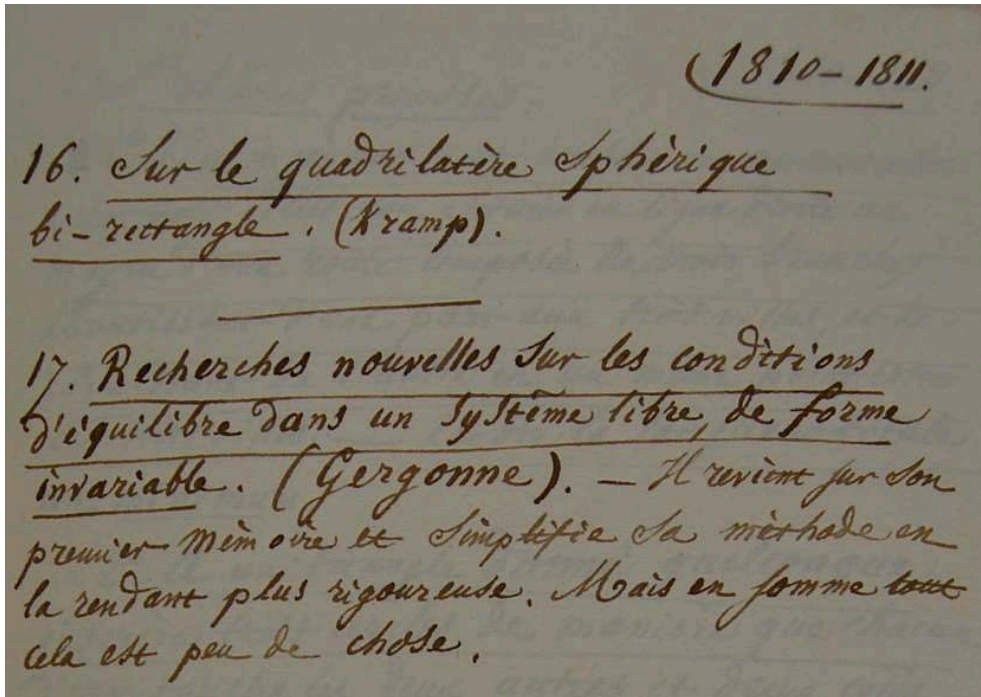 (1810-1811.
16. Sur le quadrilatère sphérique
bi-rectangle. (Kramp).
17. Recherches nouvelles sur les conditions
d'équilibre dans un système libre, de forme
invariable. (Gergonne). — Il revient sur son
premier mémoire et simplifie sa méthode en
la rendant plus rigoureuse. Mais en somme tout
cela est peu de chose.